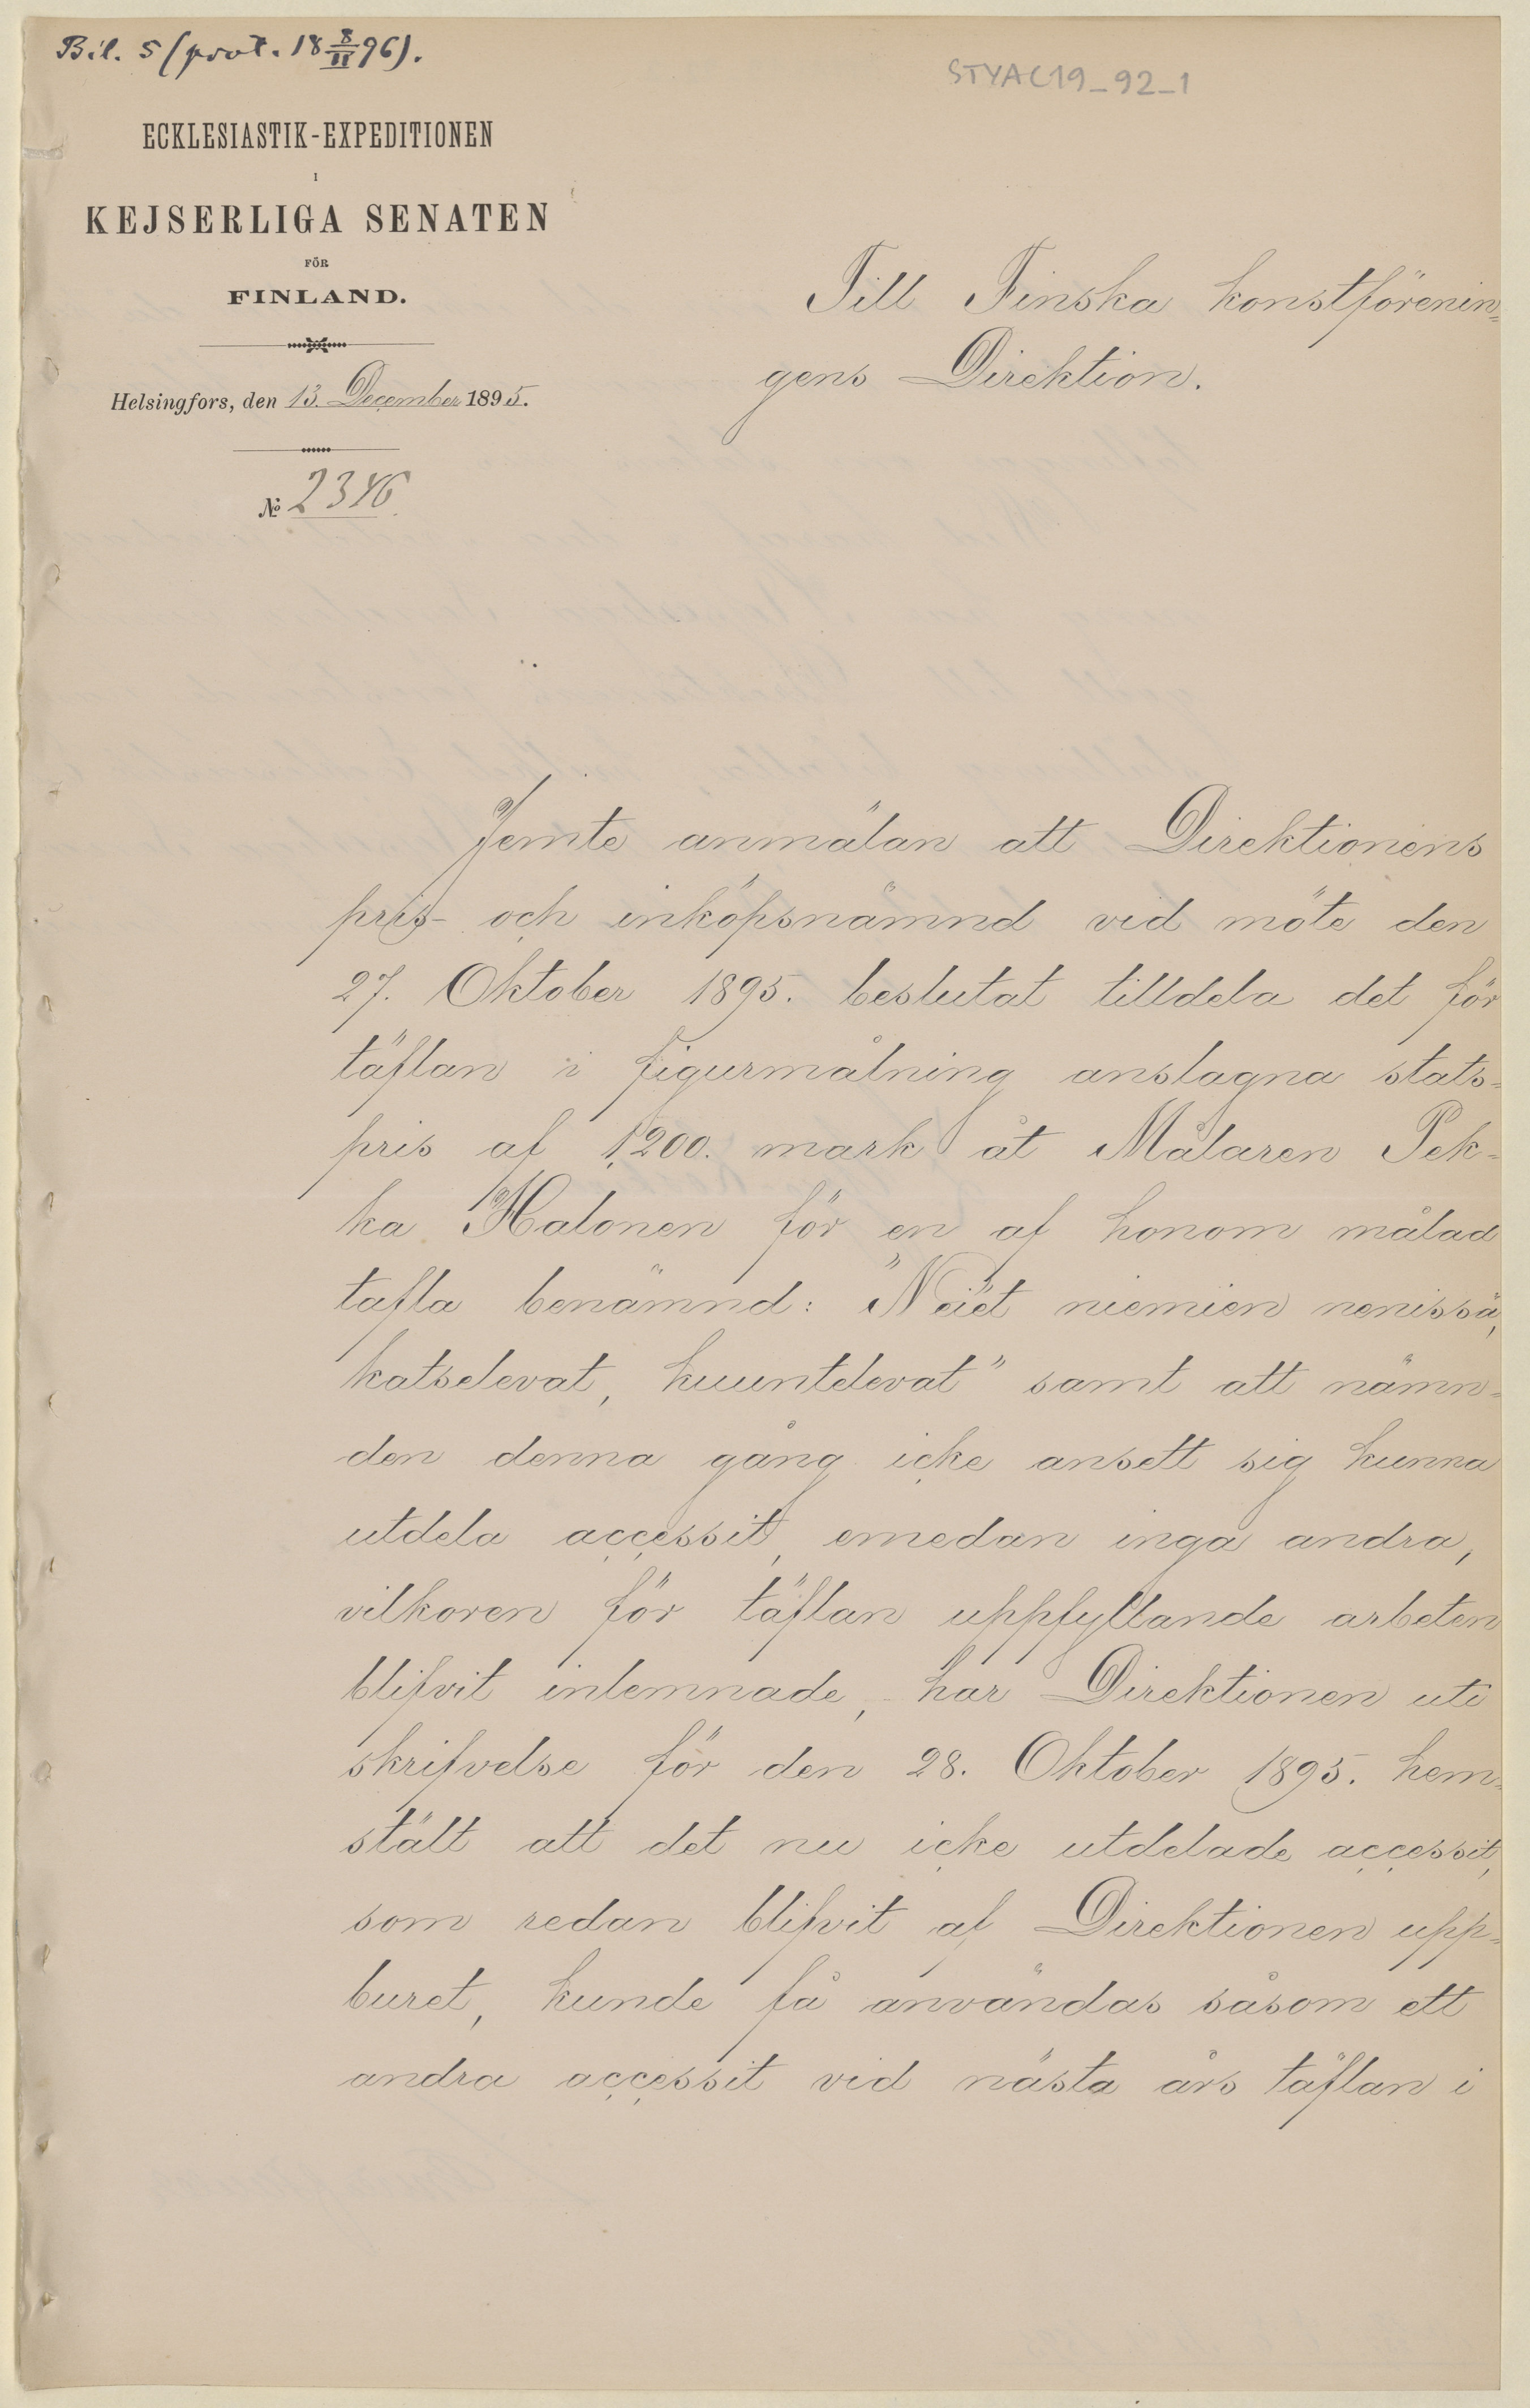 Bil. 5 (prot. 18 8/II 96).
STYAC19_92_1
ECKLESIASTIK-EXPEDITIONEN
I
KEJSERLIGA SENATEN
FÖR
FINLAND.
Helsingfors, den 13. December 1895.
№ 2346.
Till Finska konstförenin-
gens Direktion.
Jemte anmälan att Direktionens
pris- och inköpsnämnd vid möte den
27. Oktober 1895. beslutat tilldela det för
täflan i figurmålning anslagna stats-
pris af 1,200. mark åt Målaren Pek-
ka Halonen för en af honom målad
tafla benämnd: "Neiet niemien nenissä,
katselevat, kuuntelevat" samt att nämn-
den denna gång icke ansett sig kunna
utdela accessit, emedan inga andra,
vilkoren för täflan uppfyllande arbeten
blifvit inlemnade, har Direktionen uti
skrifvelse för den 28. Oktober 1895. hem-
stält att det nu icke utdelade accessit,
som redan blifvit af Direktionen upp-
buret, kunde få användas såsom ett
andra accessit vid nästa års täflan i